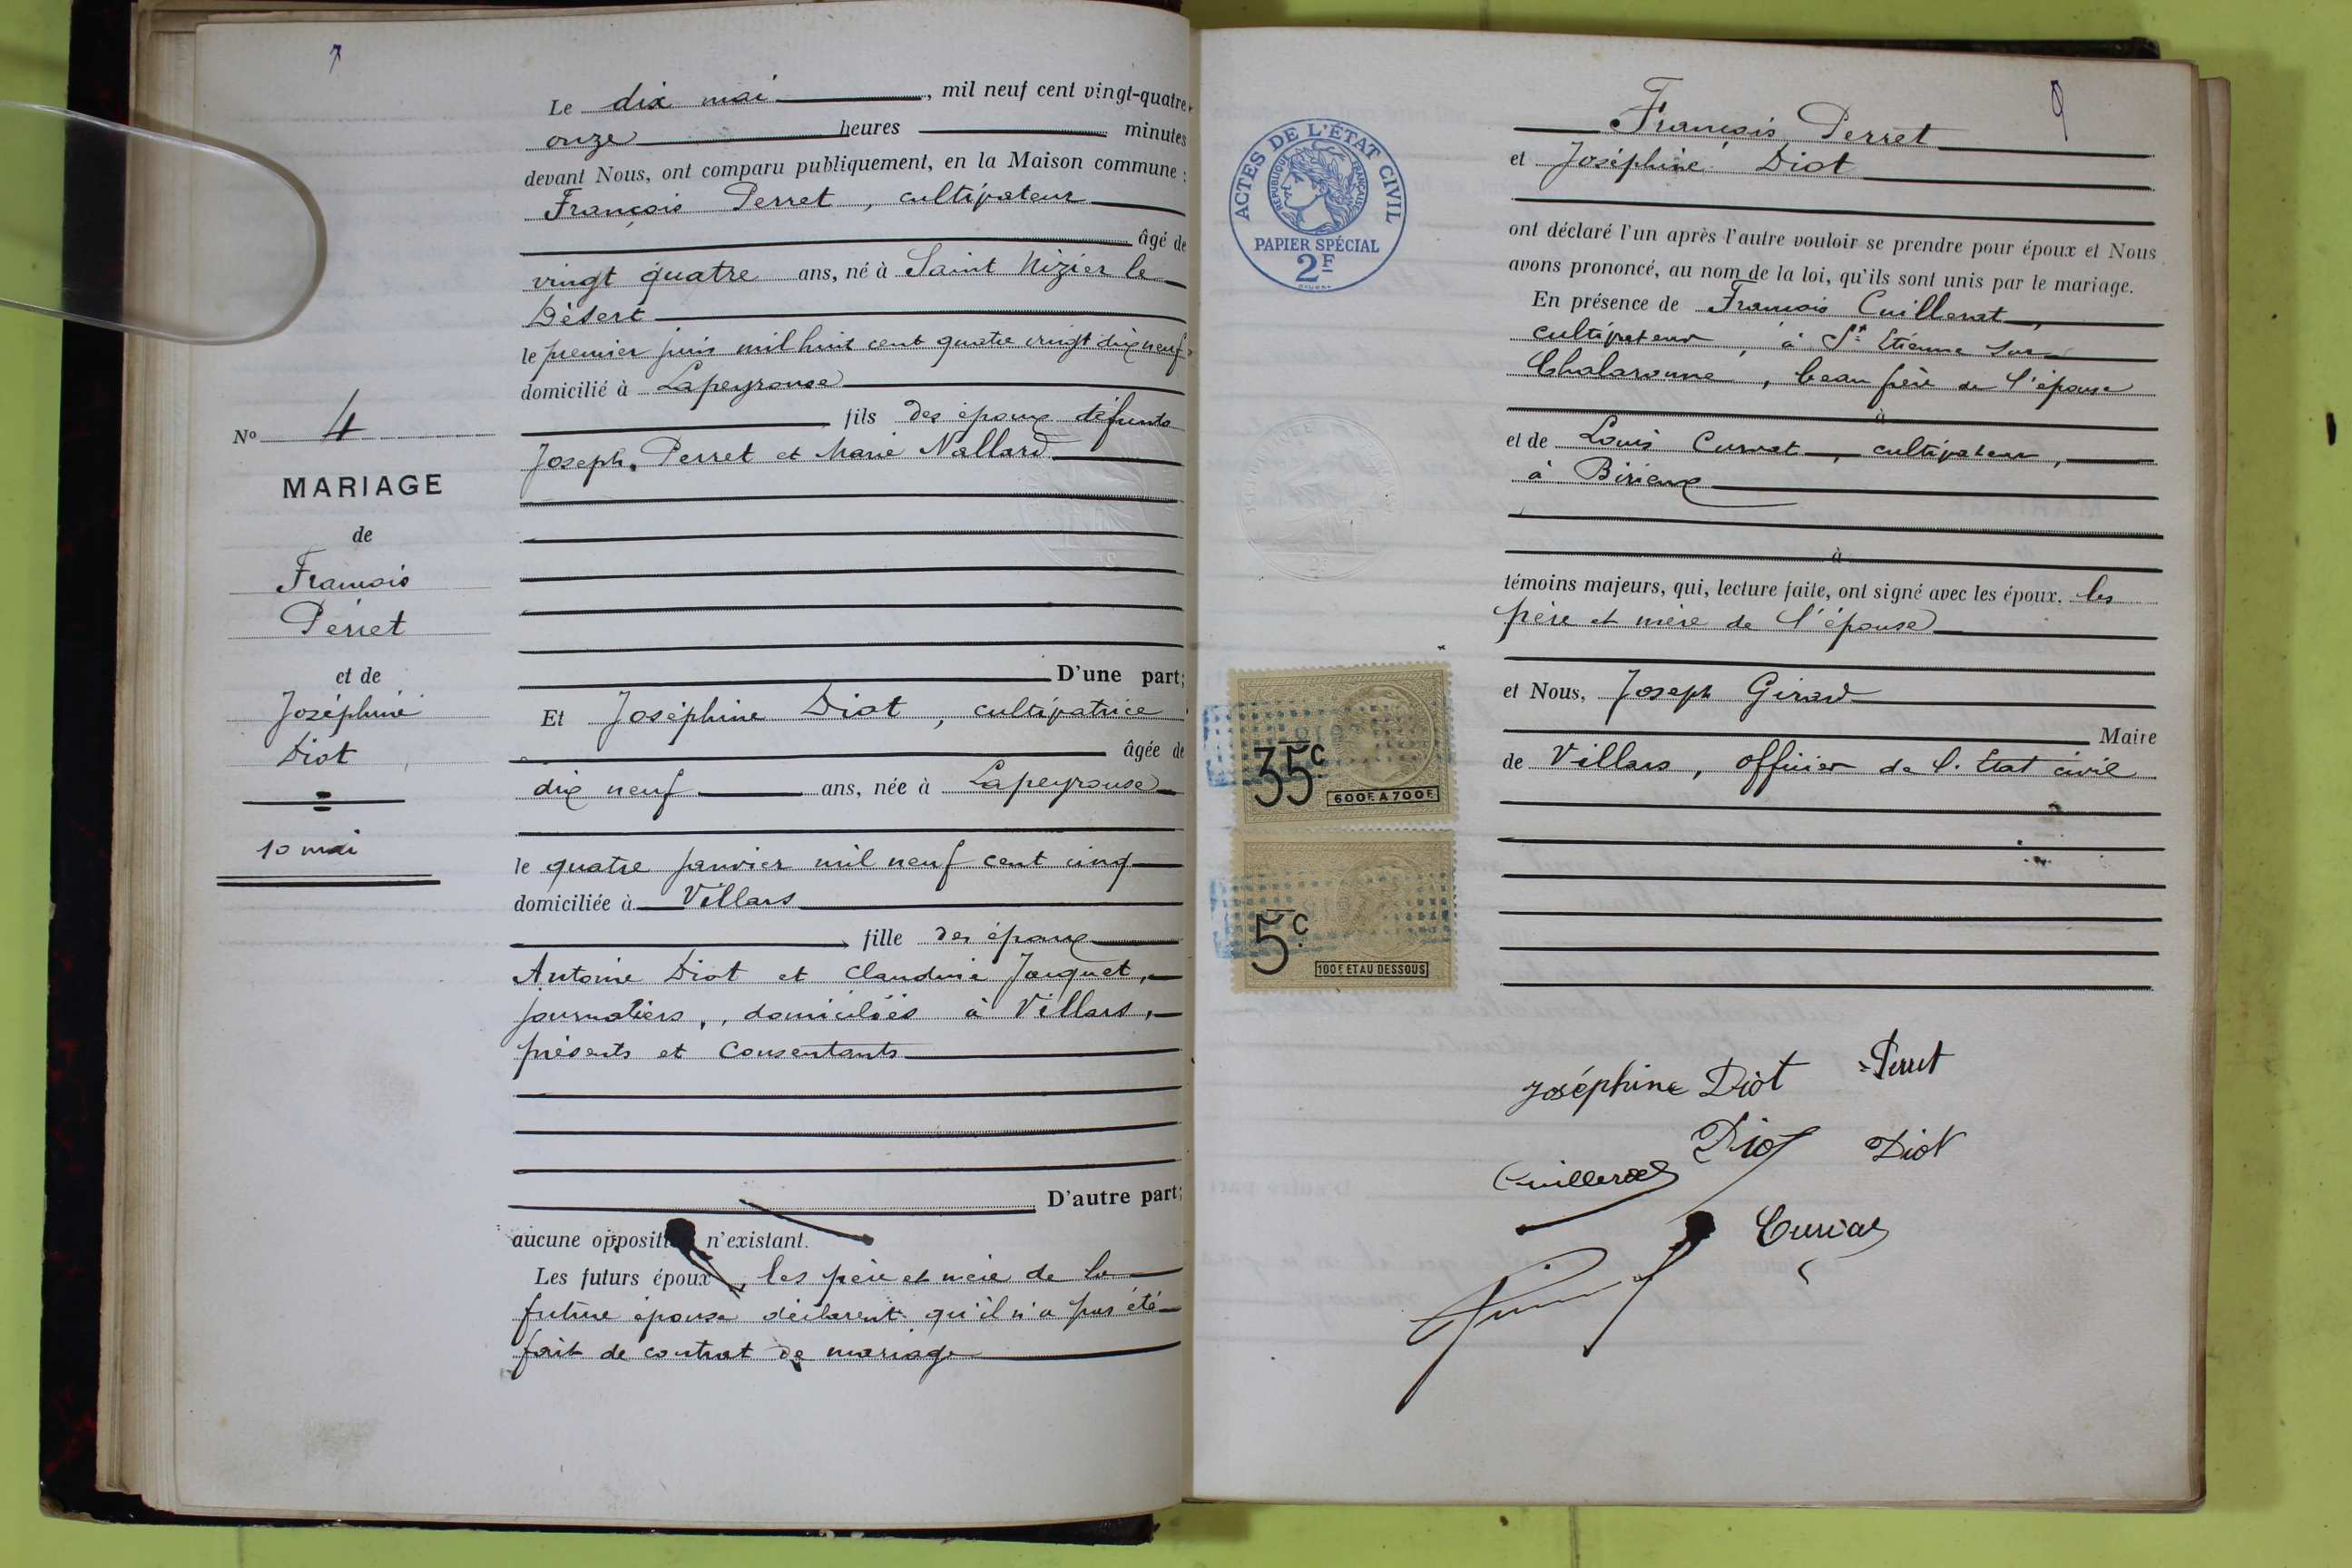 Le dix mai, mil neuf cent vingt-quatre
onze heures minutes
devant Nous, ont comparu publiquement, en la Maison commune :
François Perret, cultivateur
âgé de
vingt quatre ans, né à Saint Nizier le
Désert
le premier juin mil huit cent quatre vingt dix neuf
domicilié à Lapeyrouse
fils des époux défunts
Joseph Perret et Marie Nallard
D'une part;
Et Joséphine Diot, cultivatrice
âgée de
dix neuf ans, née à Lapeyrouse
le quatre janvier mil neuf cent cinq
domiciliée à Villars
fille des époux
Antoine Diot et Claudine Jacquet,
journaliers, domiciliés à Villars,
présents et consentants
D'autre part;
aucune opposition n'existant.
Les futurs époux, les père et mère de la
future épouse déclarent qu'il n'a pas été
fait de contrat de mariage
No 4
MARIAGE
de
François
Perret
et de
Joséphine
Diot
10 mai
ACTES DE L'ÉTAT CIVIL
RÉPUBLIQUE FRANÇAISE
PAPIER SPÉCIAL
2F
35c
600F. A 700F.
5c
100F. ET AU DESSOUS
9
François Perret
et Joséphine Diot
ont déclaré l'un après l'autre vouloir se prendre pour époux et Nous
avons prononcé, au nom de la loi, qu'ils sont unis par le mariage.
En présence de François Cuillerat,
cultivateur, à St Etienne sur
Chalaronne, beau frère de l'épouse
à
et de Louis Curvat, cultivateur,
à Birieux
à
témoins majeurs, qui, lecture faite, ont signé avec les époux, les
père et mère de l'épouse
et Nous, Joseph Girard
Maire
de Villars, officier de l'Etat civil
Joséphine Diot Perret
Diot Diot
Cuillerat